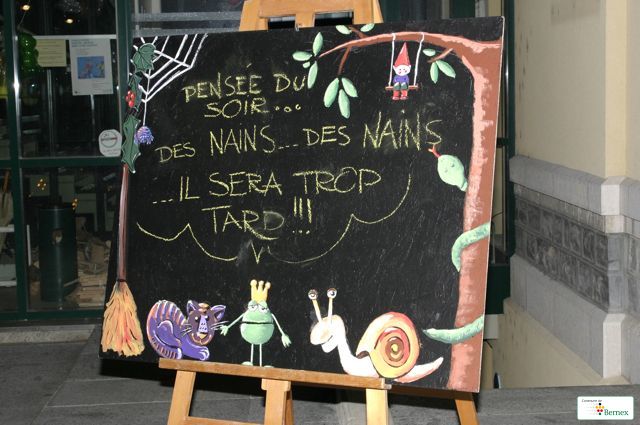 PENSÉE DU
SOIR...
DES NAINS...DES NAINS
...IL SERA TROP
TARD!!!
Commune de
Bernex